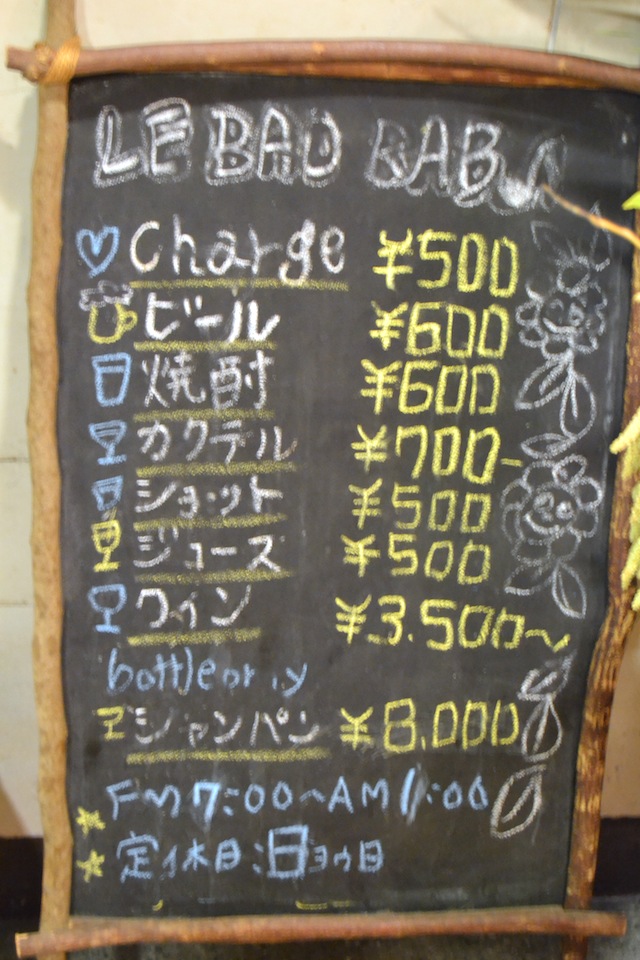 LE BAO BAB
Charge ¥500
ビール ¥600
焼酎 ¥600
カクテル ¥700-
ショット ¥500
ジュース ¥500
ワイン ¥3.500~
bottle only
シャンパン ¥8.000
PM 7:00~AM 1:00
定休日:日ヨウ日